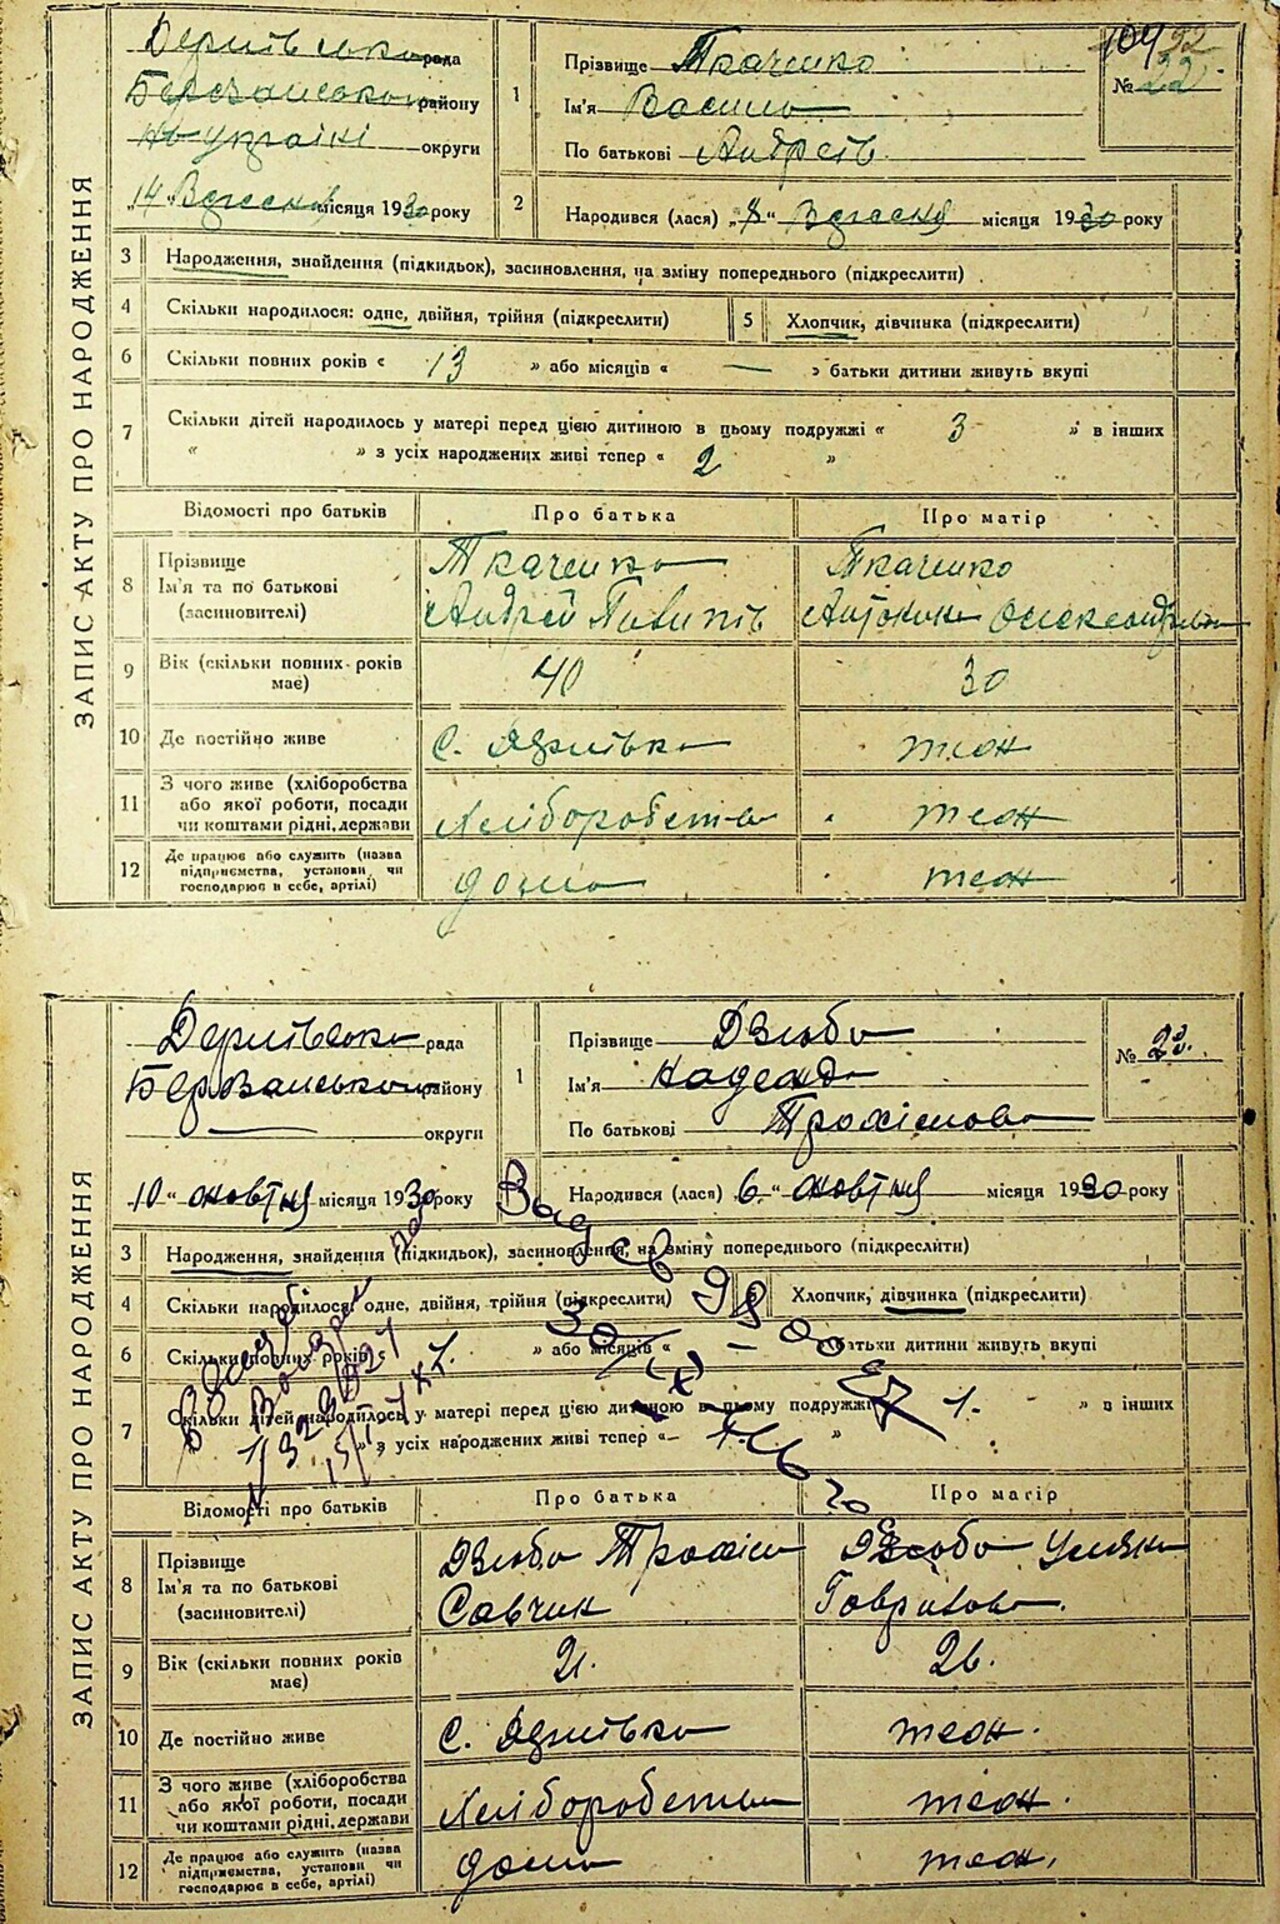 ЗАПИС АКТУ ПРО НАРОДЖЕННЯ
Дернівська рада
Березанського району
округи
"14" Вересня місяця 1930 року
1
Прізвище Ткаченко
Ім'я Василь
По батькові Андреїв
104 92
№ 22.
2
Народився (лася) „8“ Вересня місяця 1930 року
3 Народження, знайдення (підкидьок), засиновлення, на зміну попереднього (підкреслити)
4 Скільки народилося: одне, двійня, трійня (підкреслити) 5 Хлопчик, дівчинка (підкреслити)
6 Скільки повних років « 13 » або місяців « — » батьки дитини живуть вкупі
7 Скільки дітей народилось у матері перед цією дитиною в цьому подружжі « 3 » в інших
« » з усіх народжених живі тепер « 2 »
Відомості про батьків Про батька Про матір
8 Прізвище Ткаченко Ткаченко
Ім'я та по батькові Андрей Антонина Олександрівна
(засиновителі)
9 Вік (скільки повних років має) 40 30
10 Де постійно живе С. Дернівка теж
11 З чого живе (хліборобства або якої роботи, посади чи коштами рідні, держави Хліборобства теж
12 Де працює або служить (назва підприємства, установи чи господарює в себе, артілі) дома теж
ЗАПИС АКТУ ПРО НАРОДЖЕННЯ
Дернівська рада
Березанського району
— округи
10 “ жовтня місяця 1930 року
1
Прізвище Дзюба
Ім'я Надежда
По батькові Трохимова
№ 23.
Народився (лася) „6“ жовтня місяця 1930 року
3 Народження, знайдення (підкидьок), засиновлення, на зміну попереднього (підкреслити)
4 Скільки народилося: одне, двійня, трійня (підкреслити) 5 Хлопчик, дівчинка (підкреслити)
6 Скільки повних років « » або місяців « — » батьки дитини живуть вкупі
7 Скільки дітей народилось у матері перед цією дитиною в цьому подружжі « 1. » в інших
» з усіх народжених живі тепер « »
Відомості про батьків Про батька Про матір
8 Прізвище Дзюба Трохим Дзюба Уляна
Ім'я та по батькові Савчик Гаврилова.
(засиновителі)
9 Вік (скільки повних років має) 21. 26.
10 Де постійно живе С. Дернівка теж.
11 З чого живе (хліборобства або якої роботи, посади чи коштами рідні, держави Хліборобства теж.
12 Де працює або служить (назва підприємства, установи чи господарює в себе, артілі) дома теж.